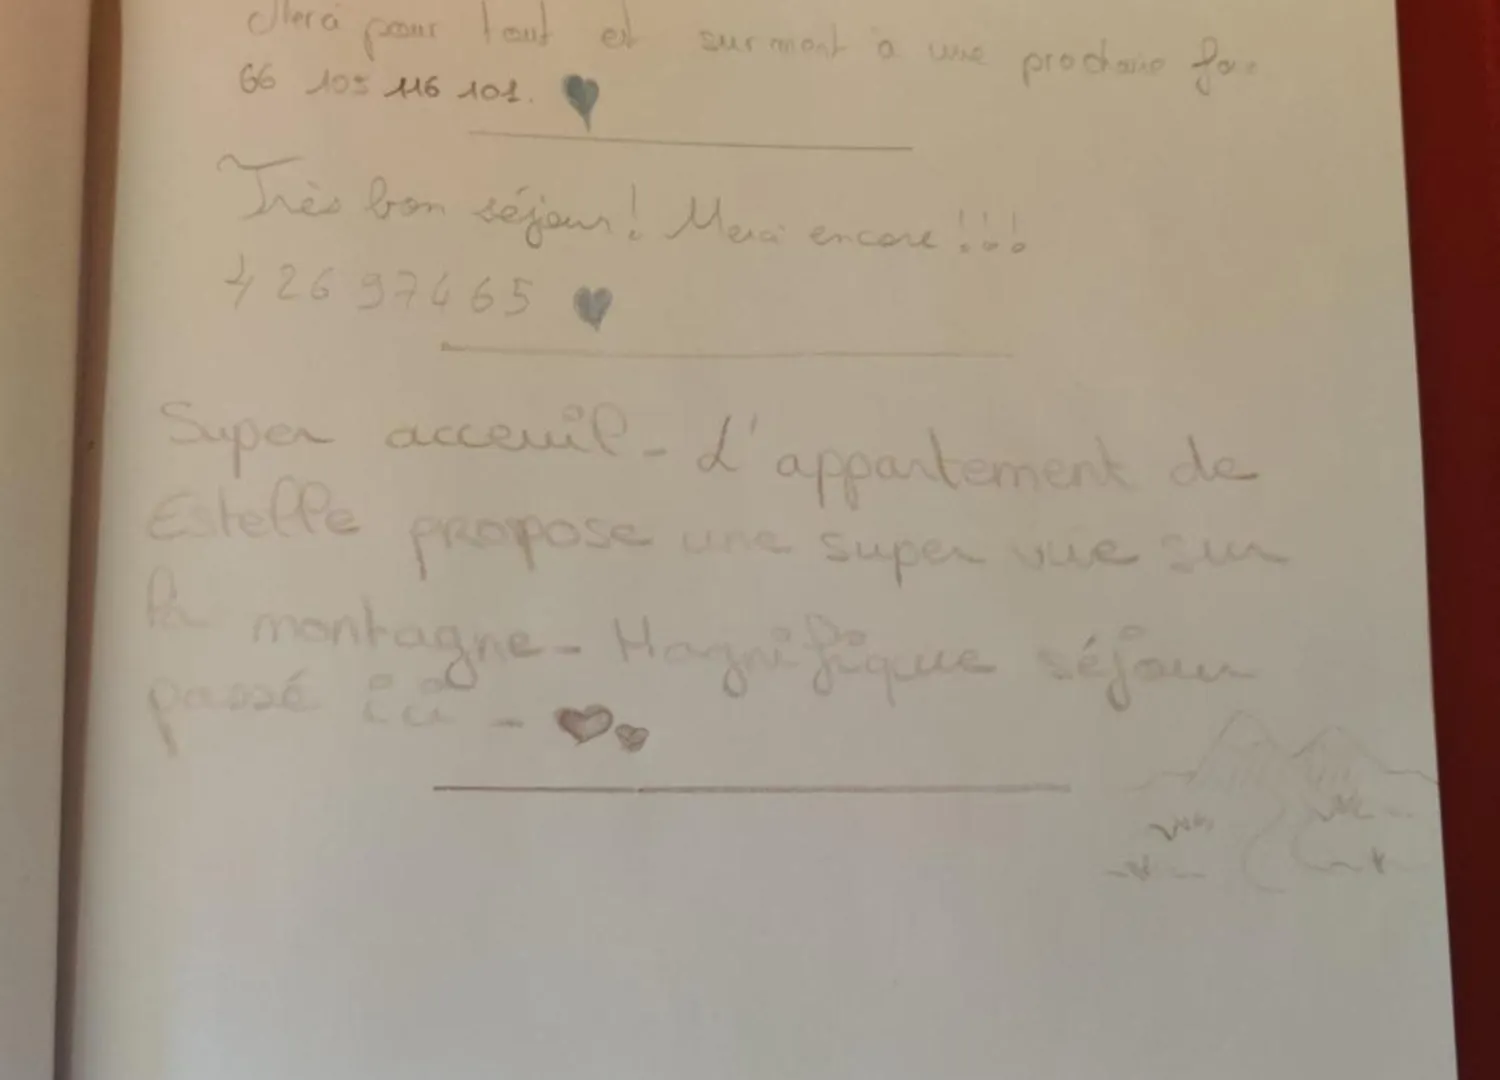 Merci pour tout et surment à une prochaine fois
66 105 116 101.
Très bon séjour! Merci encore!!!
4 26 97465
Super acceuil - L'appartement de
Estelle propose une super vue sur
la montagne - Magnifique séjour
passé ici -